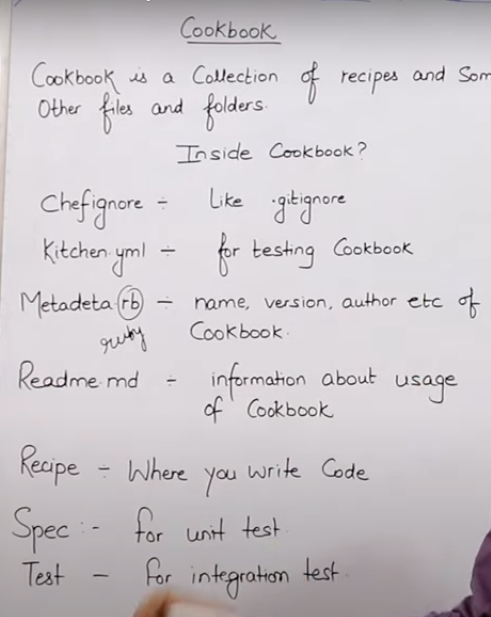 Cookbook
Cookbook is a Collection of recipes and Som
Other files and folders.
Inside Cookbook?
Chefignore ÷ Like .gitignore
Kitchen.yml ÷ for testing Cookbook
Metadeta.rb ÷ name, version, author etc of
ruby Cookbook.
Readme.md ÷ information about usage
of Cookbook
Recipe ÷ Where you write Code
Spec :- for unit test
Test - for integration test.